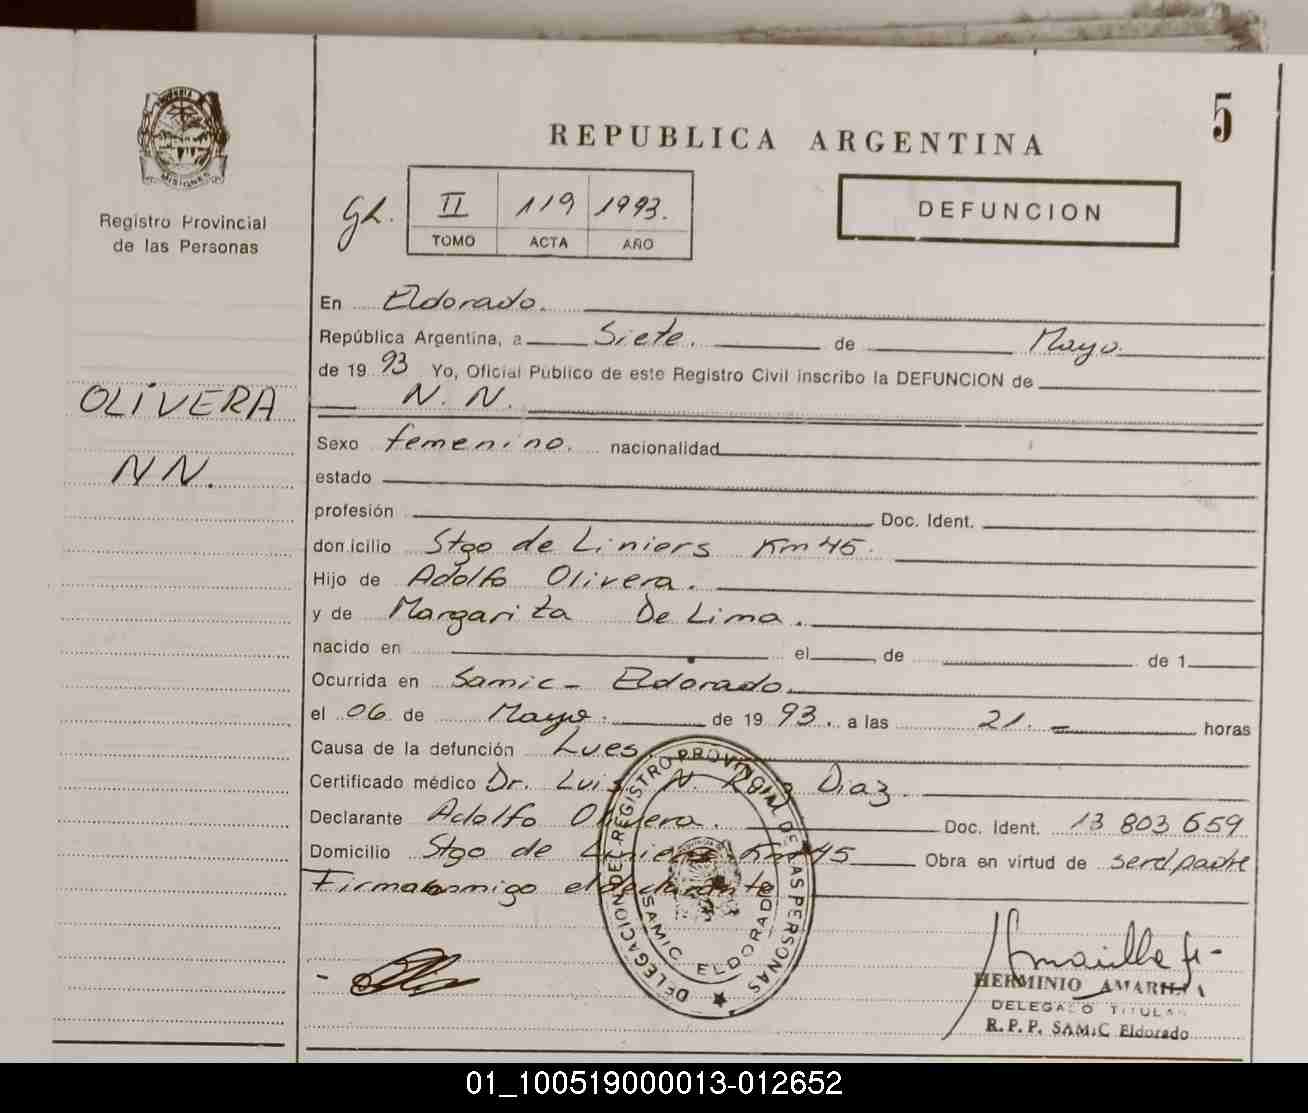 5
REPUBLICA ARGENTINA
PROVINCIA
MISIONES
Registro Provincial
de las Personas
II 119 1993.
TOMO ACTA AÑO
DEFUNCION
OLIVERA
NN.
En Eldorado.
República Argentina, a Siete. de Mayo.
de 19 93 Yo, Oficial Publico de este Registro Civil inscribo la DEFUNCION de
N. N.
Sexo femenino. nacionalidad
estado
profesión Doc. Ident.
domicilio Stgo de Liniers Km 45.
Hijo de Adolfo Olivera.
y de Margarita De Lima.
nacido en el de de 1
Ocurrida en Samic - Eldorado.
el 06 de Mayo. de 19 93. a las 21. horas
Causa de la defunción Lues.
Certificado médico Dr. Luis N. Diaz.
Declarante Adolfo Olivera. Doc. Ident. 13 803 659
Domicilio Stgo de Liniers Km 45 Obra en virtud de ser el padre
Firma conmigo el declarante
DELEGACION DEL REGISTRO PROVINCIAL DE LAS PERSONAS
SAMIC ELDORADO
HERMINIO AMARILLA
DELEGADO TITULAR
R. P. P. SAMIC Eldorado
01_100519000013-012652